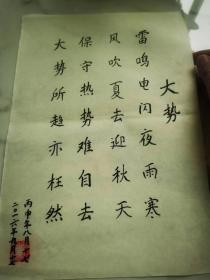 大势
雷鸣电闪夜雨寒
风吹夏去迎秋天
保守热势难自去
大势所趋亦枉然
丙申年八月十七
二〇一六年九月十七